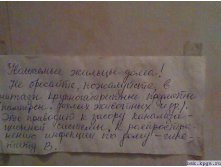 Уважаемые жильцы дома!
Не бросайте, пожалуйста, в
унитазы крупногабаритные предметы
(памперсы, дохлых животных и др.).
Это приводит к засору канализа-
ционной системы, к распростра-
нению инфекции по дому – гепа-
титу В.